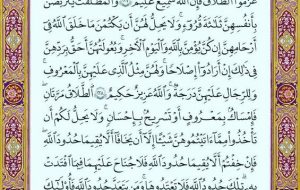 عَزَمُوا۟ ٱلطَّلَٰقَ فَإِنَّ ٱللَّهَ سَمِيعٌ عَلِيمٌ ۝ وَٱلْمُطَلَّقَٰتُ يَتَرَبَّصْنَ
بِأَنفُسِهِنَّ ثَلَٰثَةَ قُرُوٓءٍ وَلَا يَحِلُّ لَهُنَّ أَن يَكْتُمْنَ مَا خَلَقَ ٱللَّهُ فِىٓ
أَرْحَامِهِنَّ إِن كُنَّ يُؤْمِنَّ بِٱللَّهِ وَٱلْيَوْمِ ٱلْءَاخِرِ وَبُعُولَتُهُنَّ أَحَقُّ بِرَدِّهِنَّ
فِى ذَٰلِكَ إِنْ أَرَادُوٓا۟ إِصْلَٰحًا وَلَهُنَّ مِثْلُ ٱلَّذِى عَلَيْهِنَّ بِٱلْمَعْرُوفِ
وَلِلرِّجَالِ عَلَيْهِنَّ دَرَجَةٌ وَٱللَّهُ عَزِيزٌ حَكِيمٌ ۝ ٱلطَّلَٰقُ مَرَّتَانِ
فَإِمْسَاكٌۢ بِمَعْرُوفٍ أَوْ تَسْرِيحٌۢ بِإِحْسَٰنٍ وَلَا يَحِلُّ لَكُمْ أَن
تَأْخُذُوا۟ مِمَّآ ءَاتَيْتُمُوهُنَّ شَيْـًٔا إِلَّآ أَن يَخَافَآ أَلَّا يُقِيمَا حُدُودَ ٱللَّهِ
فَإِنْ خِفْتُمْ أَلَّا يُقِيمَا حُدُودَ ٱللَّهِ فَلَا جُنَاحَ عَلَيْهِمَا فِيمَا ٱفْتَدَتْ
بِهِۦ تِلْكَ حُدُودُ ٱللَّهِ فَلَا تَعْتَدُوهَا وَمَن يَتَعَدَّ حُدُودَ ٱللَّهِ فَأُو۟لَٰٓئِكَ